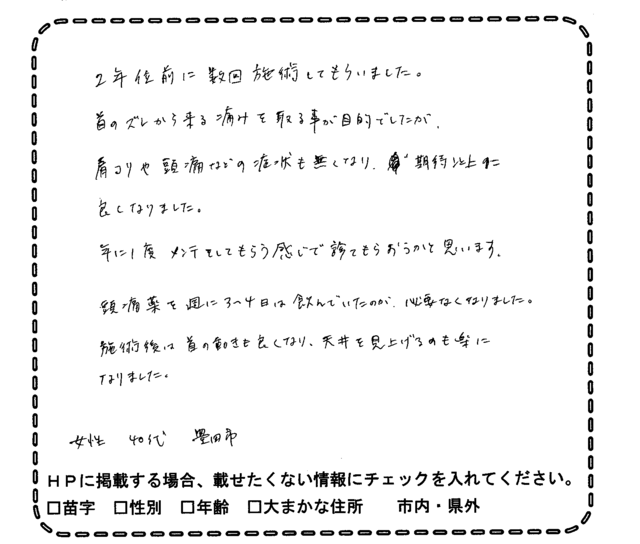 2年位前に数回施術してもらいました。
首のズレから来る痛みを取る事が目的でしたが、
肩コリや頭痛などの症状も無くなり、期待以上に
良くなりました。
年に1度メンテをしてもらう感じで診てもらおうかと思います。
頭痛薬を週に3〜4日は飲んでいたのが、必要なくなりました。
施術後は首の動きも良くなり、天井を見上げるのも楽に
なりました。
女性 40代 豊田市
HPに掲載する場合、載せたくない情報にチェックを入れてください。
□苗字 □性別 □年齢 □大まかな住所 市内・県外